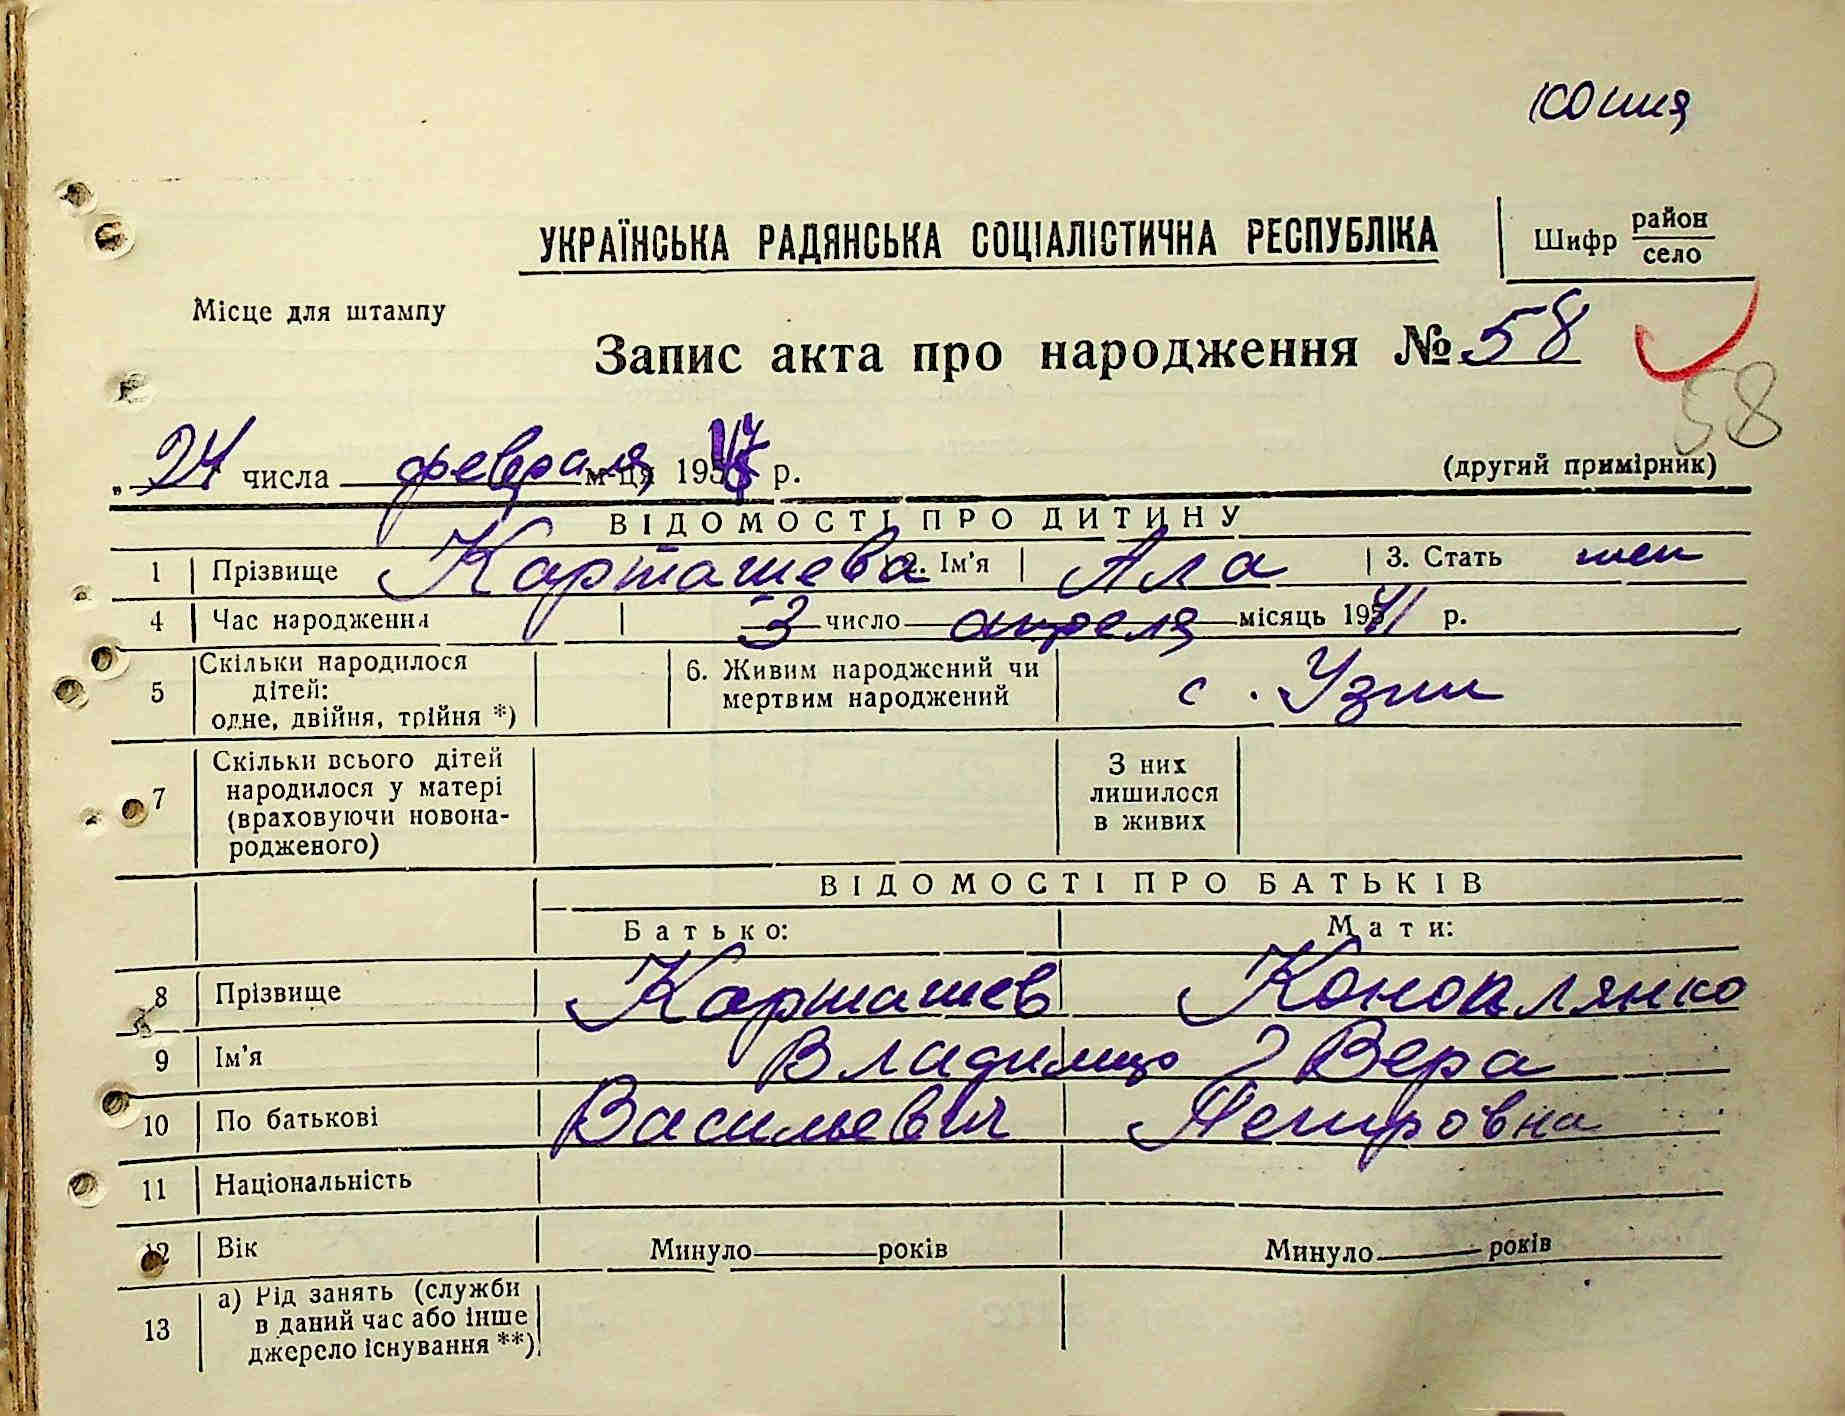 копия
УКРАЇНСЬКА РАДЯНСЬКА СОЦІАЛІСТИЧНА РЕСПУБЛІКА
Шифр район
село
Місце для штампу
Запис акта про народження № 58
58
„ 24 числа февраля м-ця 1947 р. (другий примірник)
ВІДОМОСТІ ПРО ДИТИНУ
1 Прізвище Карташева 2. Ім'я Ала 3. Стать жен
4 Час народження 3 число апреля місяць 1941 р.
5 Скільки народилося дітей: одне, двійня, трійня *) 6. Живим народжений чи мертвим народжений с. Узин
7 Скільки всього дітей народилося у матері (враховуючи новона-родженого) З них лишилося в живих
ВІДОМОСТІ ПРО БАТЬКІВ
Батько: Мати:
8 Прізвище Карташев Коноплянко
9 Ім'я Владимир Вера
10 По батькові Васильевич Петровна
11 Національність
12 Вік Минуло років Минуло років
13 а) Рід занять (служби в даний час або інше джерело існування **)